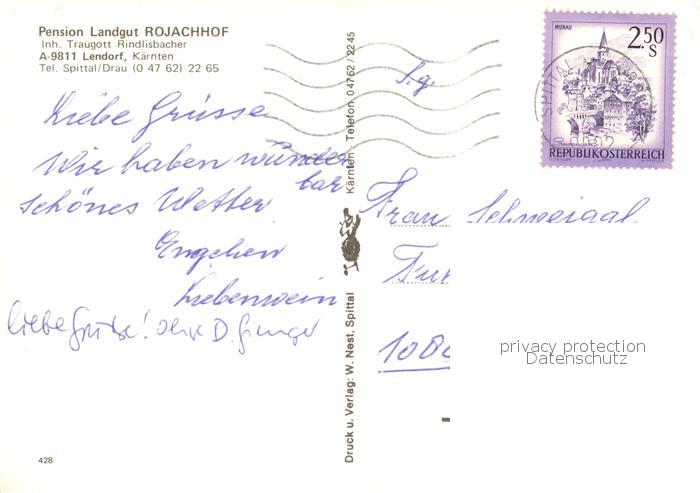 Pension Landgut ROJACHHOF
Inh. Traugott Rindlisbacher
A-9811 Lendorf, Kärnten
Tel. Spittal/Drau (0 47 62) 22 65
Liebe Grüsse
Wir haben wunder
bar
schönes Wetter
Engchen
Liebenwein
liebe Grüße!
428
Druck u. Verlag: W. Nest, Spittal
Kärnten · Telefon 0 47 62 / 22 45
MURAU
2.50
S
REPUBLIK ÖSTERREICH
SPITTAL
S.g.
Frau
108
privacy protection
Datenschutz